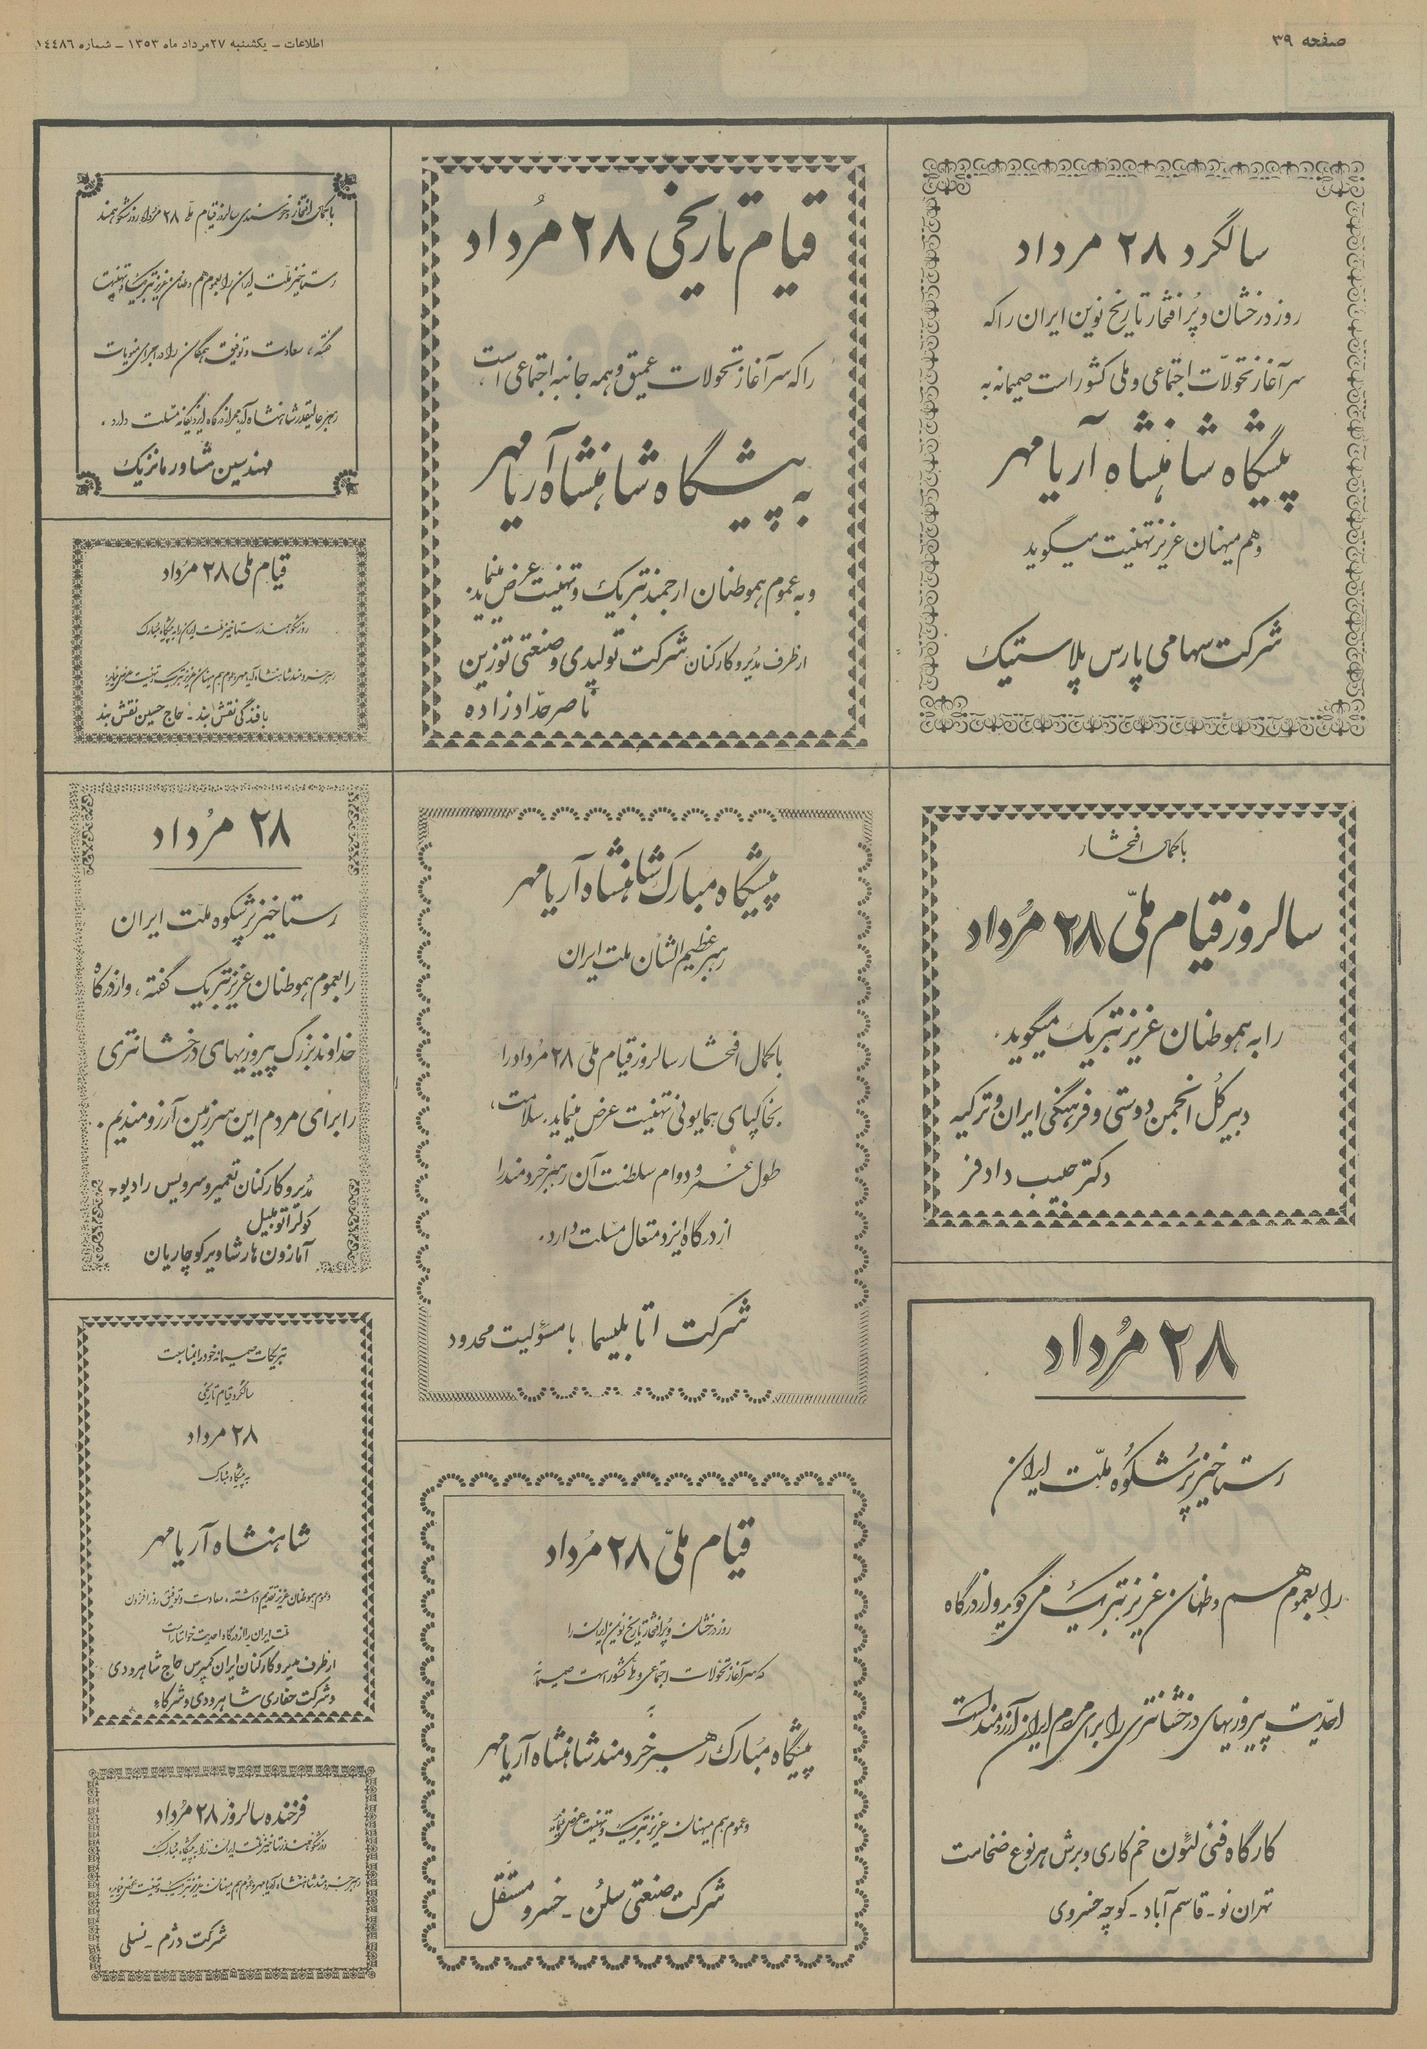 صفحه ۳۹
اطلاعات ـ یکشنبه ۲۷ مرداد ماه ۱۳۵۳ ـ شماره ۱۴۴۸۶
سالگرد ۲۸ مرداد
روز درخشان و پُر افتخار تاریخ نوین ایران را که
سرآغاز تحوّلات اجتماعی و ملی کشور است صمیمانه به
پیشگاه شاهنشاه آریامهر
و هم میهنان عزیز تهنیت میگوید
شرکت سهامی پارس پلاستیک
قیام تاریخی ۲۸ مُرداد
را که سرآغاز تحولات عمیق و همه جانبه اجتماعی است،
به پیشگاه شاهنشاه آریامهر
و به عموم هموطنان ارجمند تبریک و تهنیت عرض مینماید.
ازطرف مدیر و کارکنان شرکت تولیدی و صنعتی توزین
ناصر حدّادزاده
با کمال افتخار و خرسندی سالروز قیام ملی ۲۸ مرداد روز شکوهمند
رستاخیز ملت ایران را بعموم هم وطنان عزیز تبریک و تهنیت
گفته، سعادت و توفیق همگان را در اجرای منویات
رهبر عالیقدر شاهنشاه آریامهر از درگاه ایزد یگانه مسئلت دارد.
مهندسین مشاور مانزیک
قیام ملی ۲۸ مرُداد
روز شکوهمند رستاخیز ملت ایران را به پیشگاه مبارک
رهبر خردمند شاهنشاه آریامهر و عموم هم میهنان عزیز تبریک و تهنیت عرض مینماید
بافندگی نقش بند ـ حاج حسین نقش بند
با کمال افتخار
سالروز قیام ملّی ۲۸ مُرداد
را به هموطنان عزیز تبریک میگوید.
دبیر کُل انجمن دوستی و فرهنگی ایران و ترکیه
دکتر حبیب دادفر
پیشگاه مبارک شاهنشاه آریامهر
رهبر عظیم الشان ملت ایران
با کمال افتخار سالروز قیام ملّی ۲۸ مُرداد را
بخاکپای همایونی تهنیت عرض مینماید. سلامت،
طول عمر و دوام سلطنت آن رهبر خردمند را
از درگاه ایزد متعال مسئلت دارد.
شرکت اتابلیسما با مسئولیت محدود
۲۸ مُرداد
رستاخیز پُرشکوه ملّت ایران
را بعموم هموطنان عزیز تبریک گفته، و از درگاه
خداوند بزرگ پیروزیهای درخشانتری
را برای مردم این سرزمین آرزومندیم.
مُدیر و کارکنان تعمیر و سرویس رادیو ـ
کولر اتومبیل
آمازون هارشا ویرکوچاریان
۲۸ مُرداد
رستاخیز پُرشکُوه ملّت ایران
را بعموم هم وطنان عزیز تبریک می گوید و از درگاه
احدّیت پیروزیهای درخشانتری را برای مردم ایران آرزومند است
کارگاه فنی لئون خم کاری و برش هر نوع ضخامت
تهران نو ـ قاسم آباد ـ کوچه خسروی
قیام ملّی ۲۸ مُرداد
روز درخشان و پُر افتخار تاریخ نوین ایران را
که سرآغاز تحولات اجتماعی و ملی کشور است صمیمانه
به
پیشگاه مُبارک رهبر خردمند شاهنشاه آریامهر
و عموم هم میهنان عزیز تبریک و تهنیت عرض مینماید
شرکت صنعتی سلُن ـ خسرو مستقل
تبریکات صمیمانه خود را بمناسبت
سالگرد قیام تاریخی
۲۸ مرداد
به پیشگاه مبارک
شاهنشاه آریامهر
و عموم هموطنان عزیز تقدیم داشته، سعادت و توفیق روزافزون
ملت ایران را از درگاه احدیت خواستار است
ازطرف مدیر و کارکنان ایران کمپرس حاج شاهرودی
و شرکت حفاری شاهرودی و شرکاء
فرخنده سالروز ۲۸ مُرداد
روز شکوهمند رستاخیز ملت ایران را به پیشگاه مبارک
رهبر خردمند شاهنشاه آریامهر و عموم هم میهنان عزیز تبریک و تهنیت عرض مینماید
شرکت دژم ـ نسلی